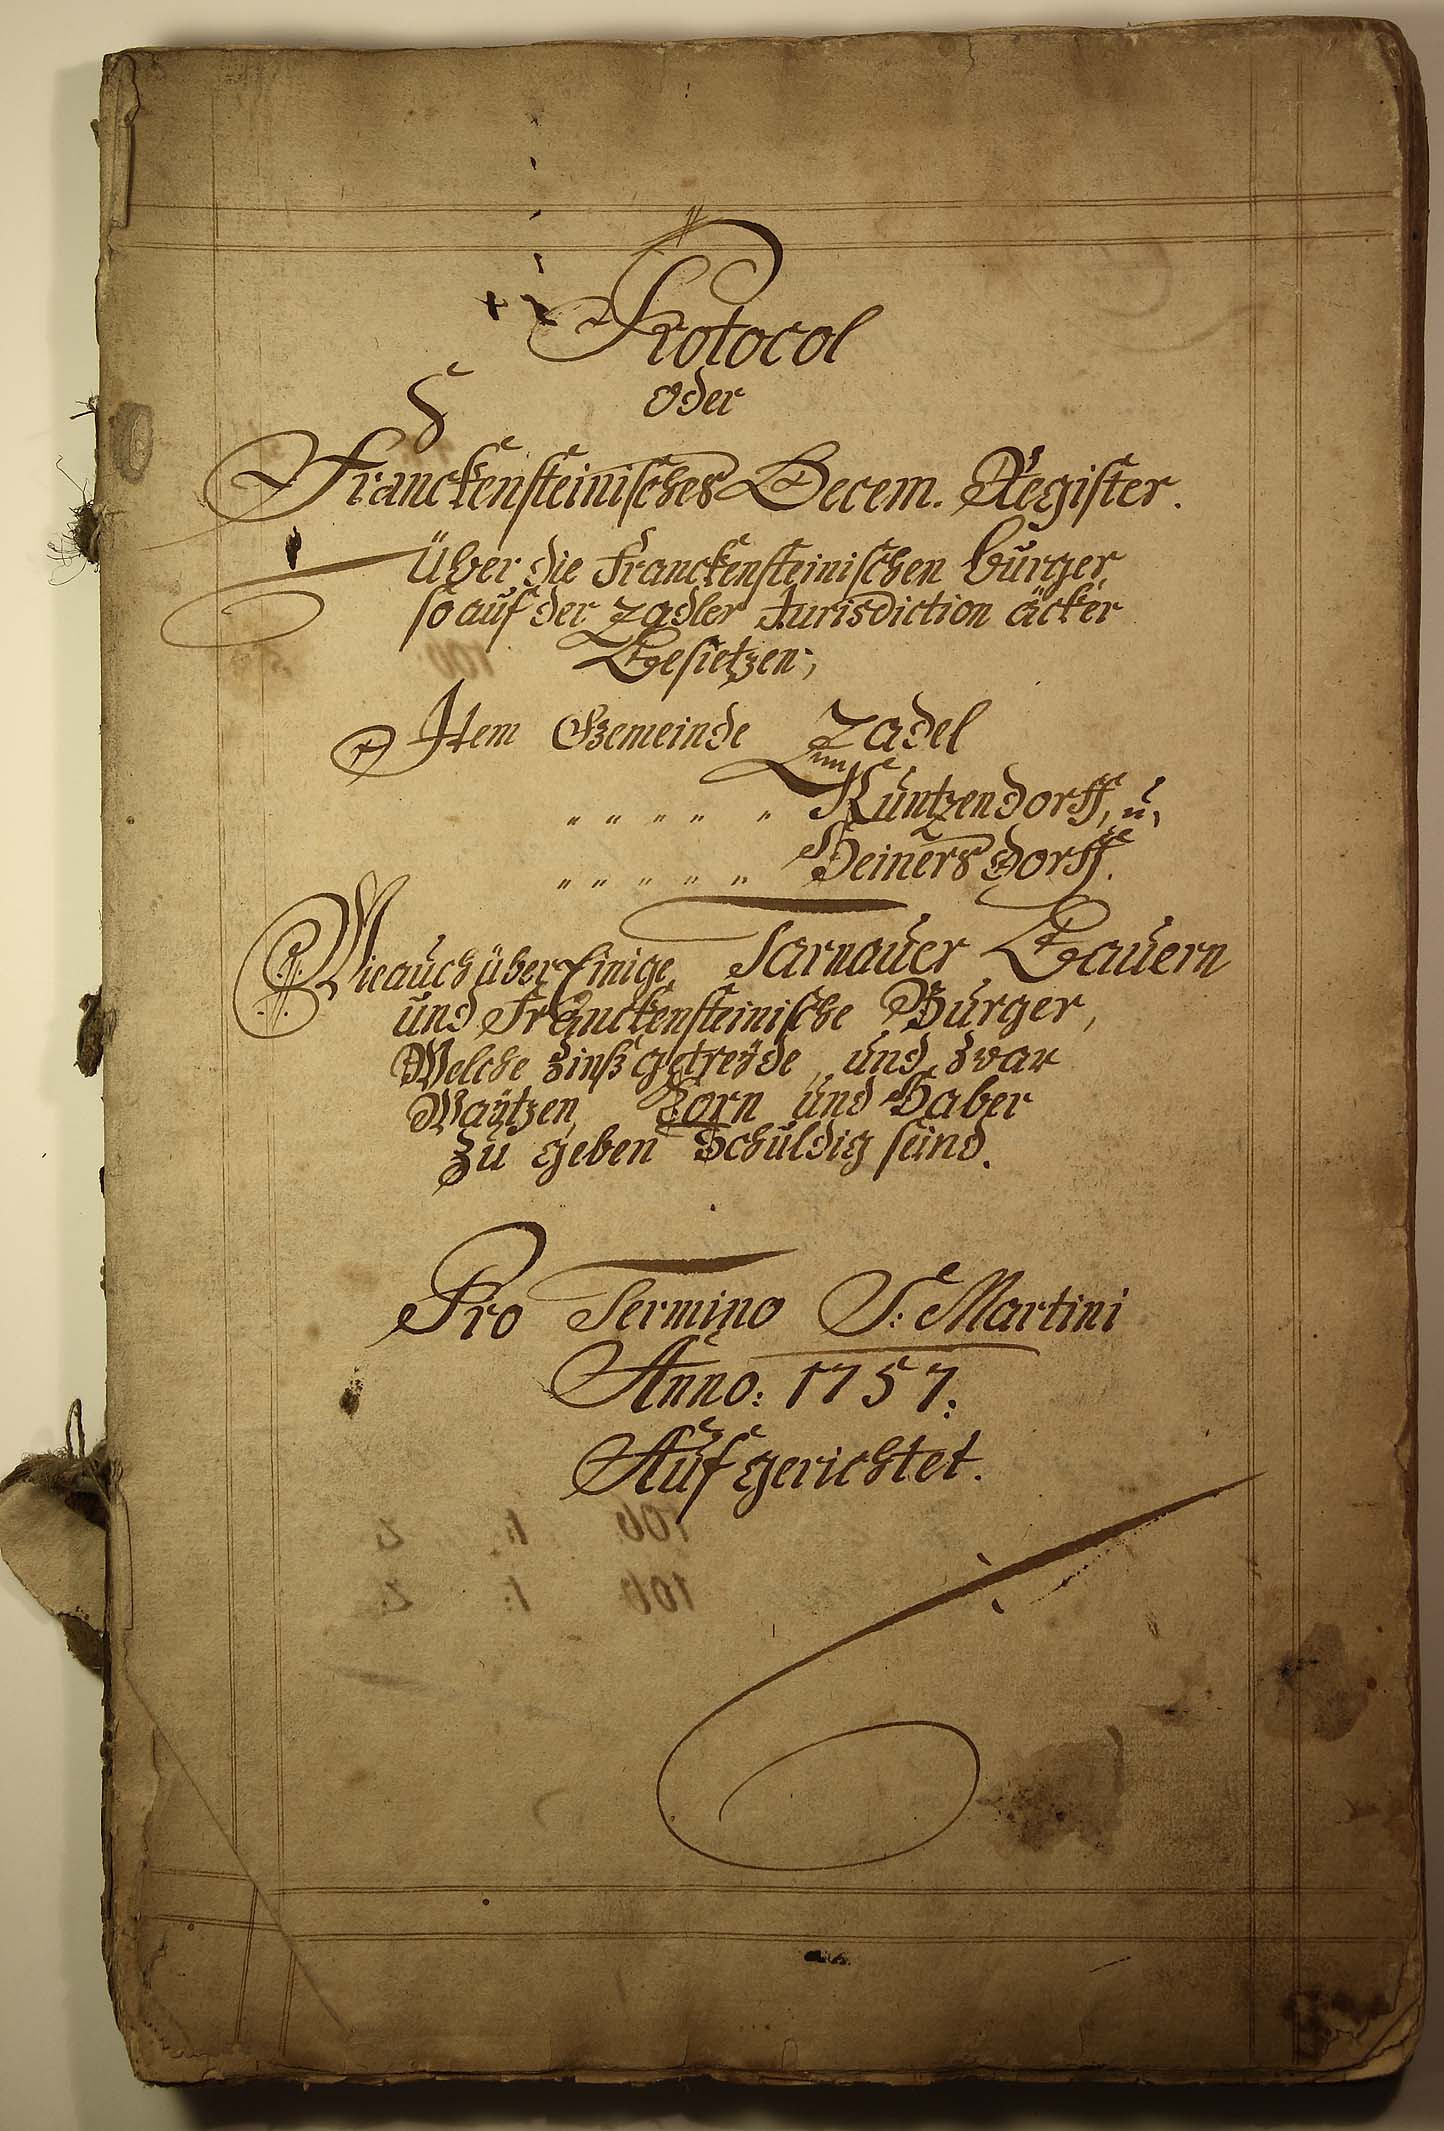 Protocol
oder
Franckensteinisches Decem. Register.
Über die Franckensteinischen Bürger,
so auf der Zadler Jurisdiction äcker
Besietzen;
Item Gemeinde Zadel
" " " " " Kuntzendorff, u,
" " " " " Heinersdorff.
Wie auch über Einige Tarnauer Bauern
und Franckensteinische Bürger,
Welche Zinß getreyde und zwar
Waytzen, Korn und Haber
Zu geben Schuldig seind.
Pro Termino S: Martini
Anno: 1757:
Aufgerichtet.